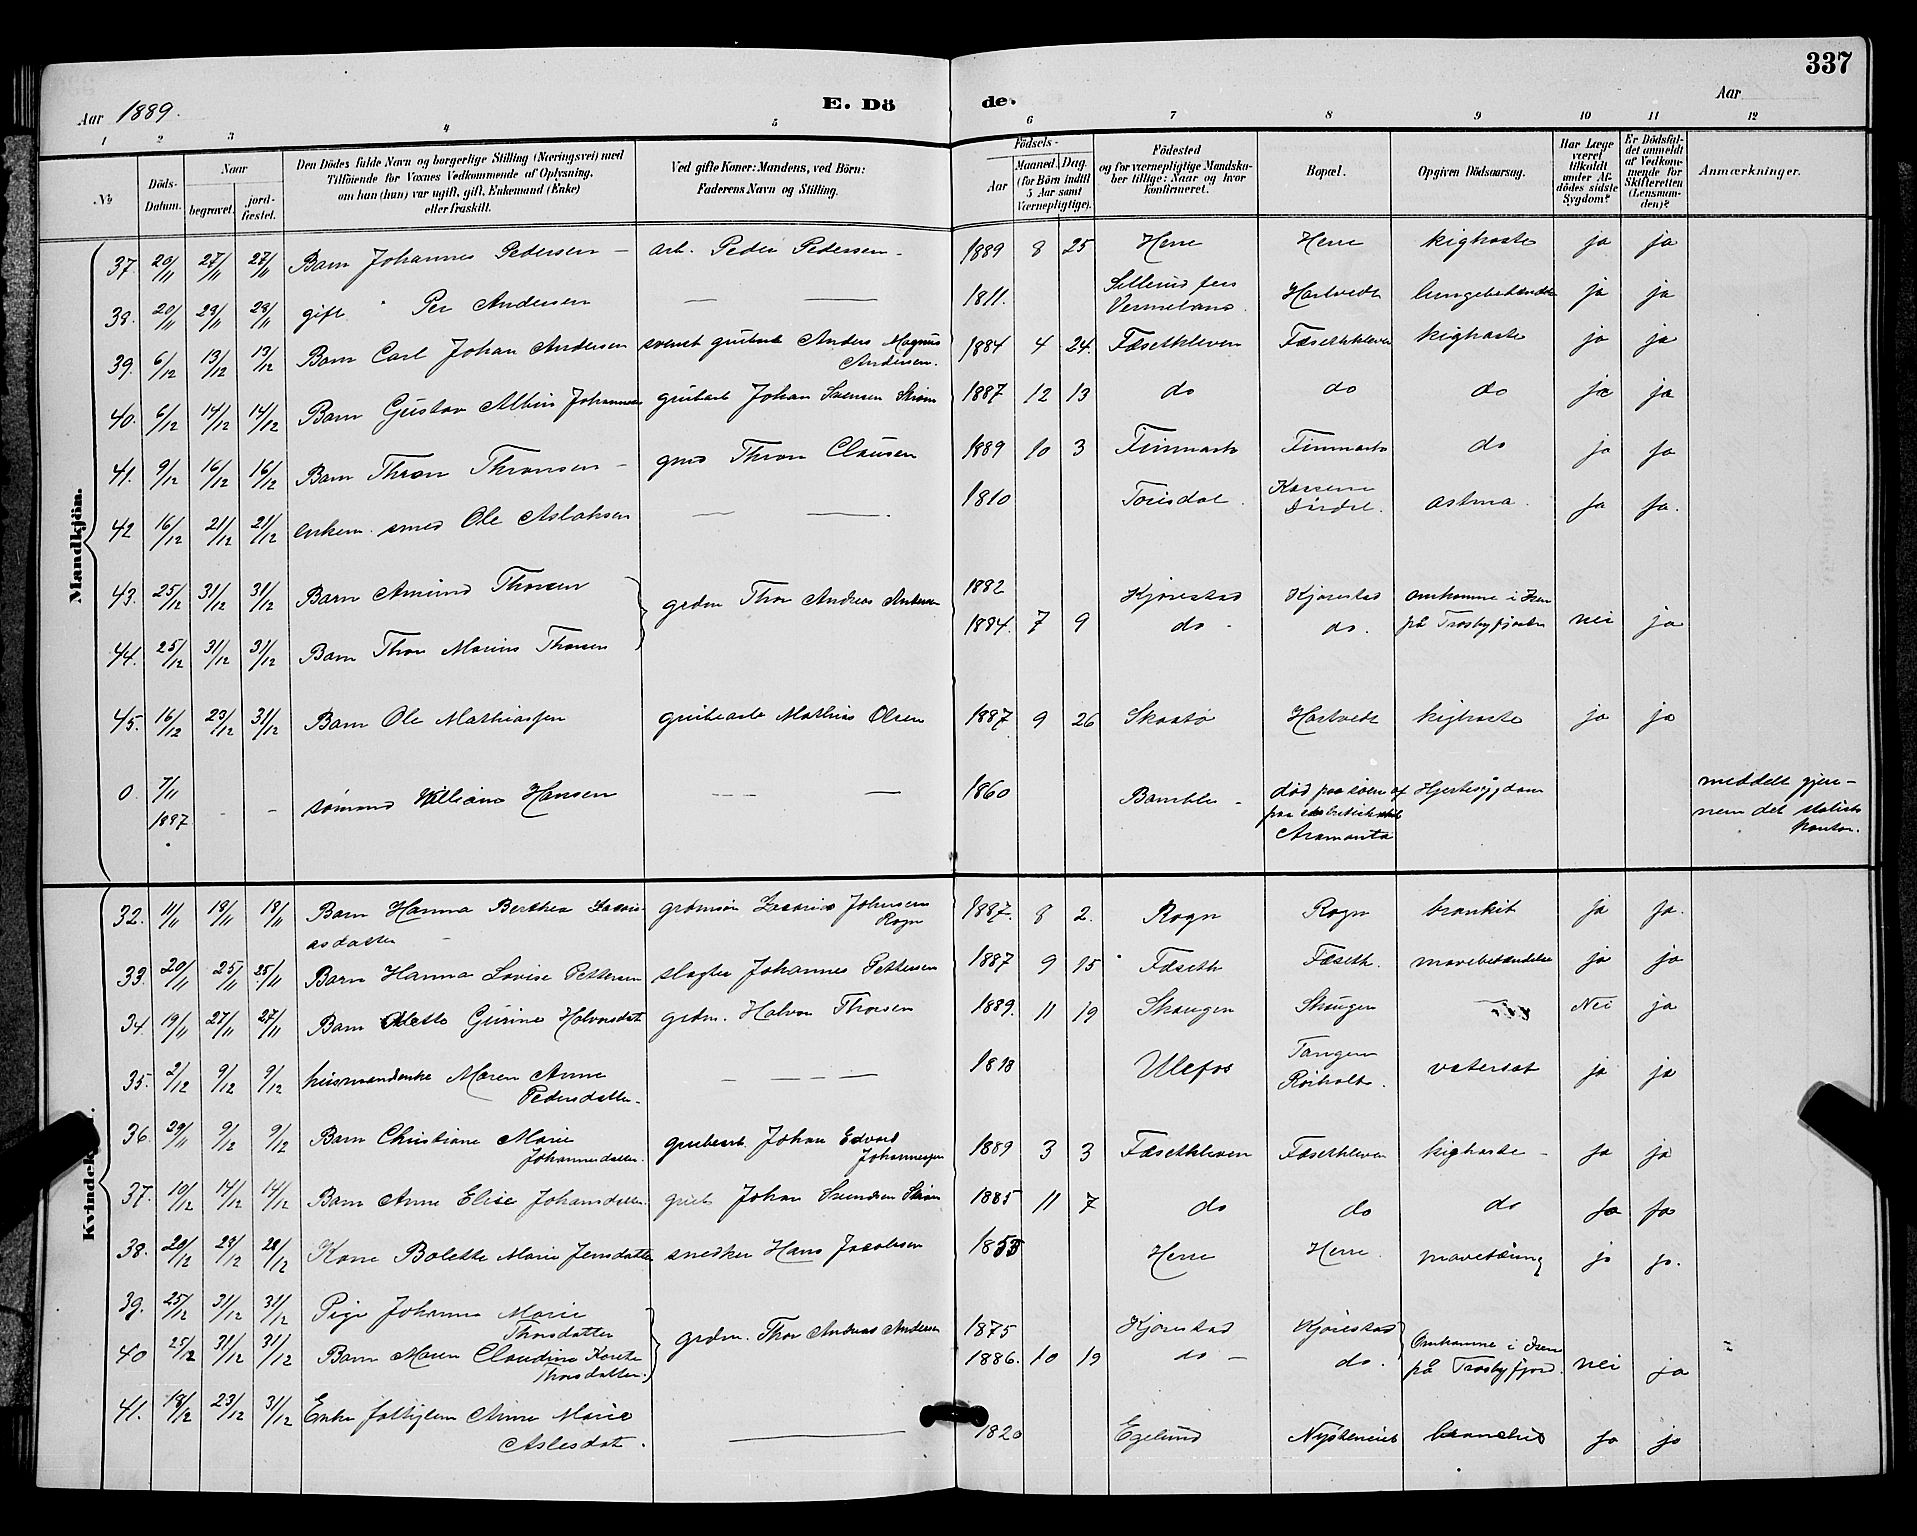 337
Aar 1889.
E. Dö de.
Aar
1 2 3 4 5 6 7 8 9 10 11 12
№
Döds-Datum.
Naar
begravet.
jord-fæstet.
Den Dödes fulde Navn og borgerlige Stilling (Næringsvei) med
Tilföiende for Voxnes Vedkommende af Oplysning,
om han (hun) var ugift, gift, Enkemand (Enke)
eller fraskilt.
Ved gifte Koner: Mandens, ved Börn:
Faderens Navn og Stilling.
Födsels-
Aar
Maaned. Dag.
(for Börn indtil
5 Aar samt
Værnepligtige).
Födested
og for værnepligtige Mandska-
ber tillige: Naar og hvor
konfirmeret.
Bopæl.
Opgiven Dödsaarsag.
Har Læge
været
tilkaldt
under Af-
dödes sidste
Sygdom?
Er Dödsfal-
det anmeldt
af Vedkom-
mende for
Skifteretten
(Lensman-
den)?
Anmærkninger.
Mandkjön.
37 20/11 27/11 27/11 Barn Johannes Pedersen – arb. Peder Pedersen – 1889 8 25 Herre Herre kighoste ja ja
38. 20/11 29/11 29/11 gift Per Andersen — — 1811. Vermeland. Hartvedt lungebetændelse ja ja
39. 6/12 13/12 13/12 Barn Carl Johan Andersen svensk grubearb Anders Magnus Andersen. 1884 4 24. Fæsetkleven Fæsetkleven kighoste ja ja
40. 6/12 14/12 14/12 Barn Gustav Albin Johannesen grubearb Johan Svensen 1887 12 13 do do do ja ja
41. 9/12 16/12 16/12 Barn Thron Thronsen – Thron Clausen 1889 10 3 Finmark Finmark do ja ja
42 16/12 21/12 21/12 enkem. smed Ole Aslaksen — — 1810 Torisdal. Dördal. astma. ja ja.
43. 25/12 31/12 31/12 Barn Amund Thorsen grdm Thor Andreas Andersen 1882 Kjörestad Kjörestad omkomne i Isen
44. 25/12 31/12 31/12 Barn Thor Marius Thorsen 1884. 7 9 do – do. på Trosbyfjorden nei ja
45. 16/12 23/12 31/12 Barn Ole Mathiassen grubearb Mathias Olsen 1887 9 26 Skaatö Hartvedt kighoste ja ja
0. 7/11 1887 – – sömand William Hansen — — 1860 Bamble – död paa söen af Hjertesygdom
Aramanta
meddelt gjen-
nem det statist.
kontor.
Kvindekjön.
32. 11/11 18/11 18/11 Barn Hanna Berthea Zakari-
asdatter grdmsön Zakarias Johnsen Rogn 1887. 8 2. Rogn Rogn bronkit ja ja.
33. 20/11 25/11 25/11 Barn Hanna Lovise Pettersen slagter Johannes Pettersen 1887 9 15 Fæseth Fæseth. mavebetændelse ja ja
34. 19/11 27/11 27/11 Barn Alette Gurine Halvorsdat grdm. Halvor Thorsen 1889. 11 19 Skaugen Skaugen — Nei ja
35. 2/12 9/12 9/12 husmandenke Maren Anne
Pedersdatter. — — — 1818 Ulefos Tangen
Roiholt. vatersot ja ja
36. 29/11 9/12 9/12 Barn Christiane Marie
Johannesdatter. grubearb. Johan Edvard
Johannessen 1889 3 3 Fæsetkleven Fæsetkleven kighoste – ja ja
37. 10/12 14/12 14/12 Barn Anne Elise Johansdatter. grub Johan Svendsen 1885 11 7 do do do ja ja
38. 20/12 28/12 28/12 Kone Bolette Marie Jensdatter snedker Hans Jacobsen 1855 Herre Herre mavetæring ja ja.
39. 25/12 31/12 31/12 Pige Johanna Marie
Thorsdatter grdm. Thor Andreas Andersen 1875 Kjörestad Kjörestad Omkomne i Isen
40 25/12 31/12 31/12 Barn Maren Claudine Karete
Thorsdatter. 1886. 10 19 do – do. på Trosbyfjord. nei ja
41. 18/12 23/12 31/12 Enke Anne Marie
Aslesdat. — 1820 Egelund Nysteneiet bronchit ja ja